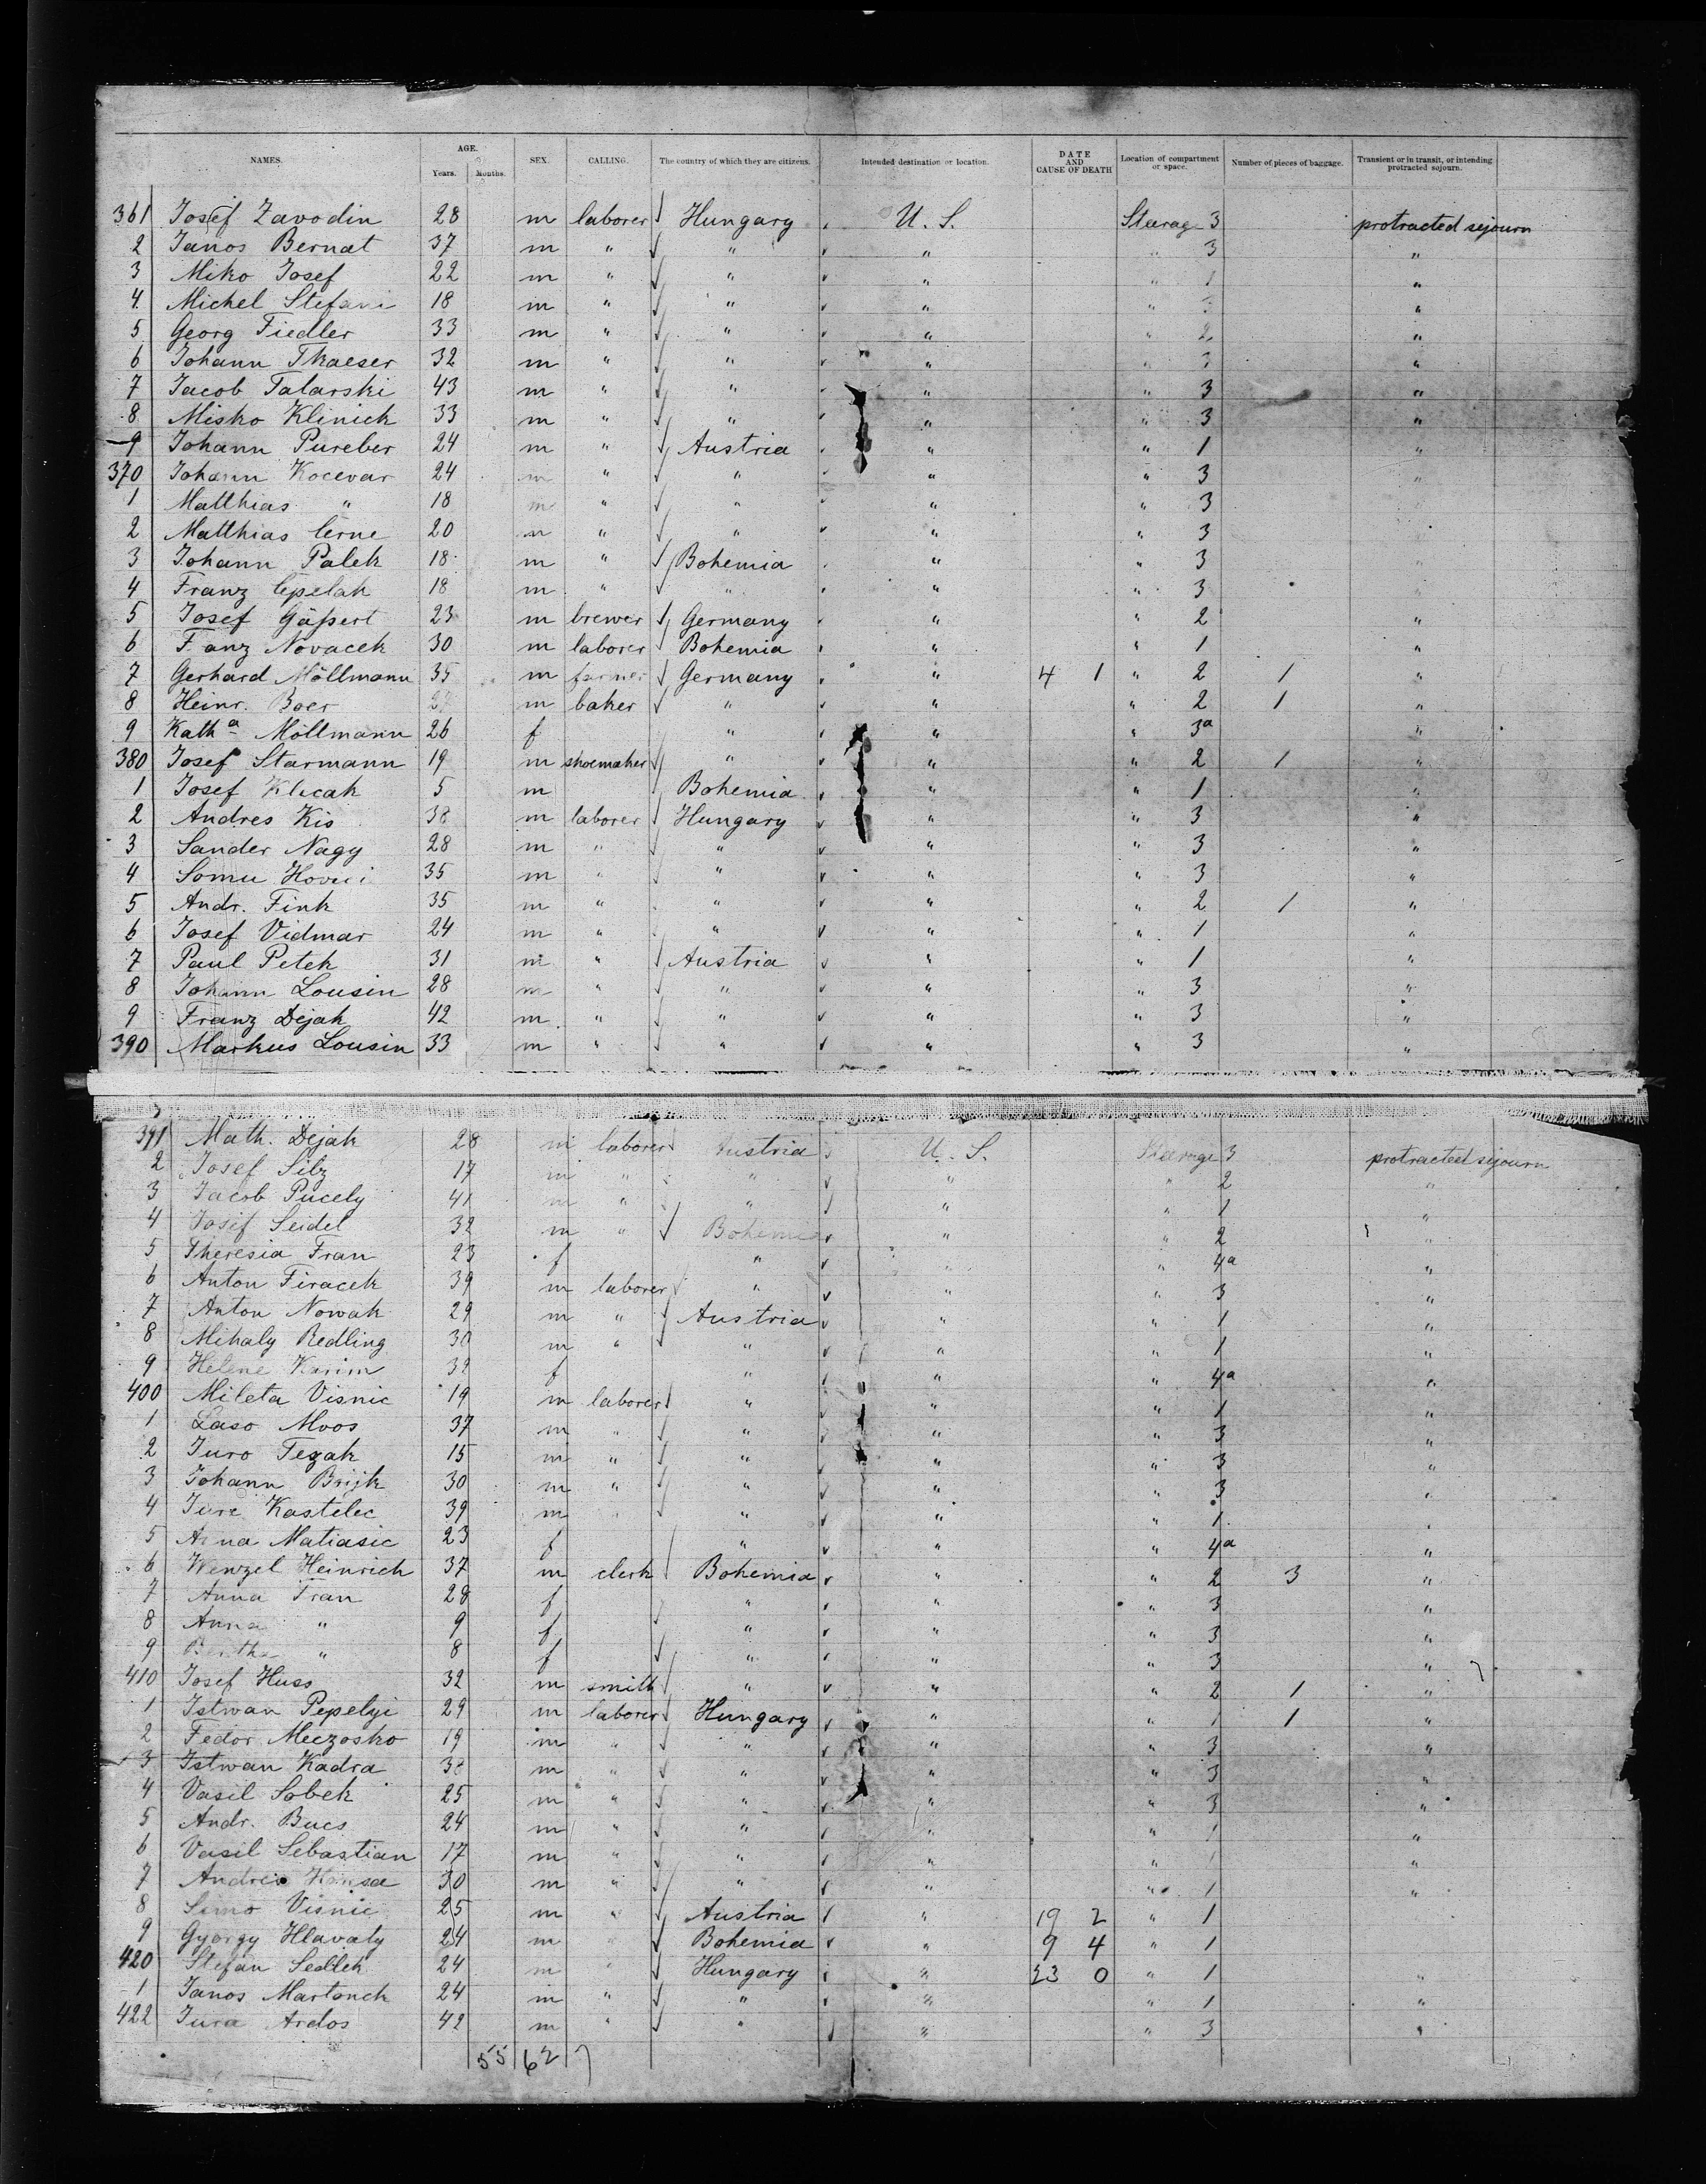 NAMES. AGE. Years. Months. SEX. CALLING. The country of which they are citizens. Intended destination or location. DATE AND CAUSE OF DEATH Location of compartment or space. Number of pieces of baggage. Transient or in transit, or intending protracted sejourn.
361 Josef Zavodin 28 m laborer Hungary U. S. Steerage 3 protracted sejourn
2 Janos Bernat 37 m " " " " 3 "
3 Miko Josef 22 m " " " " 1 "
4 Michel Stefani 18 m " " " " 3 "
5 Georg Fiedler 33 m " " " " 2 "
6 Johann Thaeser 32 m " " " " 3 "
7 Jacob Talarski 43 m " " " " 3 "
8 Misko Klinick 33 m " " " " 3 "
9 Johann Pureber 24 m " Austria " " 1 "
370 Johann Kocevar 24 m " " " " 3 "
1 Matthias " 18 m " " " " 3 "
2 Matthias Cerne 20 m " " " " 3 "
3 Johann Palek 18 m " Bohemia " " 3 "
4 Franz Cepelak 18 m " " " " 3 "
5 Josef Gäßert 23 m brewer Germany " " 2 "
6 Franz Novacek 30 m laborer Bohemia " " 1 "
7 Gerhard Möllmann 35 m farmer Germany " 4 1 " 2 1 "
8 Heinr. Boer m baker " " " 2 1 "
9 Katha Möllmann 26 f " " " 3a "
380 Josef Starmann 19 m shoemaker " " " 2 1 "
1 Josef Klicak 5 m Bohemia " " 1 "
2 Andres Kis 38 m laborer Hungary " " 3 "
3 Sander Nagy 28 m " " " " 3 "
4 Somu 35 m " " " " 3 "
5 Andr. Fink 35 m " " " " 2 1 "
6 Josef Vidmar 24 m " " " " 1 "
7 Paul Petek 31 m " Austria " " 1 "
8 Johann Lousin 28 m " " " " 3 "
9 Franz Dejak 42 m " " " " 3 "
390 Markus Lousin 33 m " " " " 3 "
391 Math. Dejak 28 m laborer Austria U. S. Steerage 3 protracted sejourn
2 Josef Silz 17 m " " " " 2 "
3 Jacob Pucely 41 m " " " " 1 "
4 Josif Seidel 32 m " Bohemia " " 2 1 "
5 Theresia Fran 23 f " " " 4a "
6 Anton Firacek 39 m laborer " " " 3 "
7 Anton Nowak 29 m " Austria " " 1 "
8 Mihaly Redling 30 m " " " " 1 "
9 Helene Karim 32 f " " " 4a "
400 Mileta Visnic 19 m laborer " " " 1 "
1 Laso Moos 37 m " " " " 3 "
2 Juro Tezak 15 m " " " " 3 "
3 Johann Brijk 30 m " " " " 3 "
4 Jure Kastelec 39 m " " " " 1 "
5 Anna Matiasic 23 f " " " 4a "
6 Wenzel Heinrich 37 m clerk Bohemia " " 2 3 "
7 Anna Fran 28 f " " " 3 "
8 Anna " 9 f " " " 3 "
9 Bertha " 8 f " " " 3 "
410 Josef Huss 32 m smith " " " 2 1 "
1 Istwan Pepelyi 29 m laborer Hungary " " 1 1 "
2 Fedor Meczosko 19 m " " " " 3 "
3 Istwan Kadra 38 m " " " " 3 "
4 Vasil Sobek 25 m " " " " 3 "
5 Andr. Bucs 24 m " " " " 1 "
6 Vasil Sebastian 17 m " " " " 1 "
7 Andreis 30 m " " " " 1 "
8 Simo Visnic 25 m " Austria " 19 2 " 1
9 Gyorgy Hlavaty 24 m " Bohemia " 9 4 " 1
420 Stefan Sedlek 24 m " Hungary " 23 0 " 1 "
1 Janos Martonek 24 m " " " " 1 "
422 Jura Ardos 42 m " " " " 3 "
55 62 7